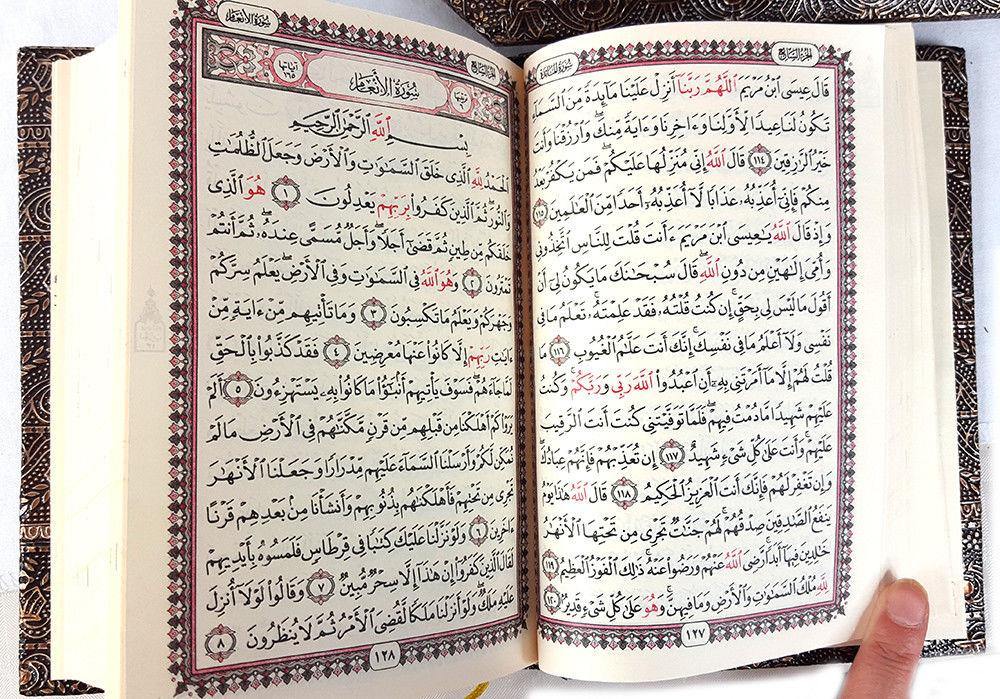 سُورَةُ المَائدة
الجُزءُ السَّابِع
قَالَ عِيسَى ٱبْنُ مَرْيَمَ ٱللَّهُمَّ رَبَّنَآ أَنزِلْ عَلَيْنَا مَآئِدَةً مِّنَ ٱلسَّمَآءِ
تَكُونُ لَنَا عِيدًا لِّأَوَّلِنَا وَءَاخِرِنَا وَءَايَةً مِّنكَ وَٱرْزُقْنَا وَأَنتَ
خَيْرُ ٱلرَّٰزِقِينَ ١١٤ قَالَ ٱللَّهُ إِنِّى مُنَزِّلُهَا عَلَيْكُمْ فَمَن يَكْفُرْ بَعْدُ
مِنكُمْ فَإِنِّىٓ أُعَذِّبُهُۥ عَذَابًا لَّآ أُعَذِّبُهُۥٓ أَحَدًا مِّنَ ٱلْعَٰلَمِينَ ١١٥
وَإِذْ قَالَ ٱللَّهُ يَٰعِيسَى ٱبْنَ مَرْيَمَ ءَأَنتَ قُلْتَ لِلنَّاسِ ٱتَّخِذُونِى
وَأُمِّىَ إِلَٰهَيْنِ مِن دُونِ ٱللَّهِ قَالَ سُبْحَٰنَكَ مَا يَكُونُ لِىٓ أَنْ
أَقُولَ مَا لَيْسَ لِى بِحَقٍّ إِن كُنتُ قُلْتُهُۥ فَقَدْ عَلِمْتَهُۥ تَعْلَمُ مَا فِى
نَفْسِى وَلَآ أَعْلَمُ مَا فِى نَفْسِكَ إِنَّكَ أَنتَ عَلَّٰمُ ٱلْغُيُوبِ ١١٦ مَا
قُلْتُ لَهُمْ إِلَّا مَآ أَمَرْتَنِى بِهِۦٓ أَنِ ٱعْبُدُوا۟ ٱللَّهَ رَبِّى وَرَبَّكُمْ وَكُنتُ
عَلَيْهِمْ شَهِيدًا مَّا دُمْتُ فِيهِمْ فَلَمَّا تَوَفَّيْتَنِى كُنتَ أَنتَ ٱلرَّقِيبَ
عَلَيْهِمْ وَأَنتَ عَلَىٰ كُلِّ شَىْءٍ شَهِيدٌ ١١٧ إِن تُعَذِّبْهُمْ فَإِنَّهُمْ عِبَادُكَ
وَإِن تَغْفِرْ لَهُمْ فَإِنَّكَ أَنتَ ٱلْعَزِيزُ ٱلْحَكِيمُ ١١٨ قَالَ ٱللَّهُ هَٰذَا يَوْمُ
يَنفَعُ ٱلصَّٰدِقِينَ صِدْقُهُمْ لَهُمْ جَنَّٰتٌ تَجْرِى مِن تَحْتِهَا ٱلْأَنْهَٰرُ
خَٰلِدِينَ فِيهَآ أَبَدًا رَّضِىَ ٱللَّهُ عَنْهُمْ وَرَضُوا۟ عَنْهُ ذَٰلِكَ ٱلْفَوْزُ ٱلْعَظِيمُ ١١٩
لِلَّهِ مُلْكُ ٱلسَّمَٰوَٰتِ وَٱلْأَرْضِ وَمَا فِيهِنَّ وَهُوَ عَلَىٰ كُلِّ شَىْءٍ قَدِيرٌۢ ١٢٠
١٢٧
سُورَةُ الأَنْعَام
الجُزءُ السَّابِع
ترتيبها ٦
سُورَةُ الأَنْعَام
آياتها ١٦٥
بِسْمِ ٱللَّهِ ٱلرَّحْمَٰنِ ٱلرَّحِيمِ
ٱلْحَمْدُ لِلَّهِ ٱلَّذِى خَلَقَ ٱلسَّمَٰوَٰتِ وَٱلْأَرْضَ وَجَعَلَ ٱلظُّلُمَٰتِ
وَٱلنُّورَ ثُمَّ ٱلَّذِينَ كَفَرُوا۟ بِرَبِّهِمْ يَعْدِلُونَ ١ هُوَ ٱلَّذِى
خَلَقَكُم مِّن طِينٍ ثُمَّ قَضَىٰٓ أَجَلًا وَأَجَلٌ مُّسَمًّى عِندَهُۥ ثُمَّ أَنتُمْ
تَمْتَرُونَ ٢ وَهُوَ ٱللَّهُ فِى ٱلسَّمَٰوَٰتِ وَفِى ٱلْأَرْضِ يَعْلَمُ سِرَّكُمْ
وَجَهْرَكُمْ وَيَعْلَمُ مَا تَكْسِبُونَ ٣ وَمَا تَأْتِيهِم مِّنْ ءَايَةٍ مِّنْ
ءَايَٰتِ رَبِّهِمْ إِلَّا كَانُوا۟ عَنْهَا مُعْرِضِينَ ٤ فَقَدْ كَذَّبُوا۟ بِٱلْحَقِّ
لَمَّا جَآءَهُمْ فَسَوْفَ يَأْتِيهِمْ أَنۢبَٰٓؤُا۟ مَا كَانُوا۟ بِهِۦ يَسْتَهْزِءُونَ ٥ أَلَمْ
يَرَوْا۟ كَمْ أَهْلَكْنَا مِن قَبْلِهِم مِّن قَرْنٍ مَّكَّنَّٰهُمْ فِى ٱلْأَرْضِ مَا لَمْ
نُمَكِّن لَّكُمْ وَأَرْسَلْنَا ٱلسَّمَآءَ عَلَيْهِم مِّدْرَارًا وَجَعَلْنَا ٱلْأَنْهَٰرَ
تَجْرِى مِن تَحْتِهِمْ فَأَهْلَكْنَٰهُم بِذُنُوبِهِمْ وَأَنشَأْنَا مِنۢ بَعْدِهِمْ قَرْنًا
ءَاخَرِينَ ٦ وَلَوْ نَزَّلْنَا عَلَيْكَ كِتَٰبًا فِى قِرْطَاسٍ فَلَمَسُوهُ بِأَيْدِيهِمْ
لَقَالَ ٱلَّذِينَ كَفَرُوٓا۟ إِنْ هَٰذَآ إِلَّا سِحْرٌ مُّبِينٌ ٧ وَقَالُوا۟ لَوْلَآ أُنزِلَ
عَلَيْهِ مَلَكٌ وَلَوْ أَنزَلْنَا مَلَكًا لَّقُضِىَ ٱلْأَمْرُ ثُمَّ لَا يُنظَرُونَ ٨
١٢٨